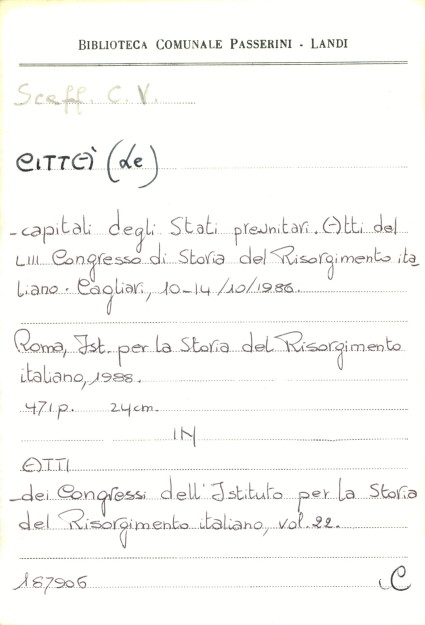 BIBLIOTECA COMUNALE PASSERINI - LANDI
Sceff. C. V.
CITTÀ (Le)
-capitali degli Stati preunitari. Atti del
LIII Congresso di Storia del Risorgimento ita_
liano. Cagliari, 10-14/10/1986.
Roma, Ist. per la Storia del Risorgimento
italiano, 1988.
471 p. 24 cm.
IN
ATTI
-dei Congressi dell'Istituto per la Storia
del Risorgimento italiano, vol. 22.
187906
C